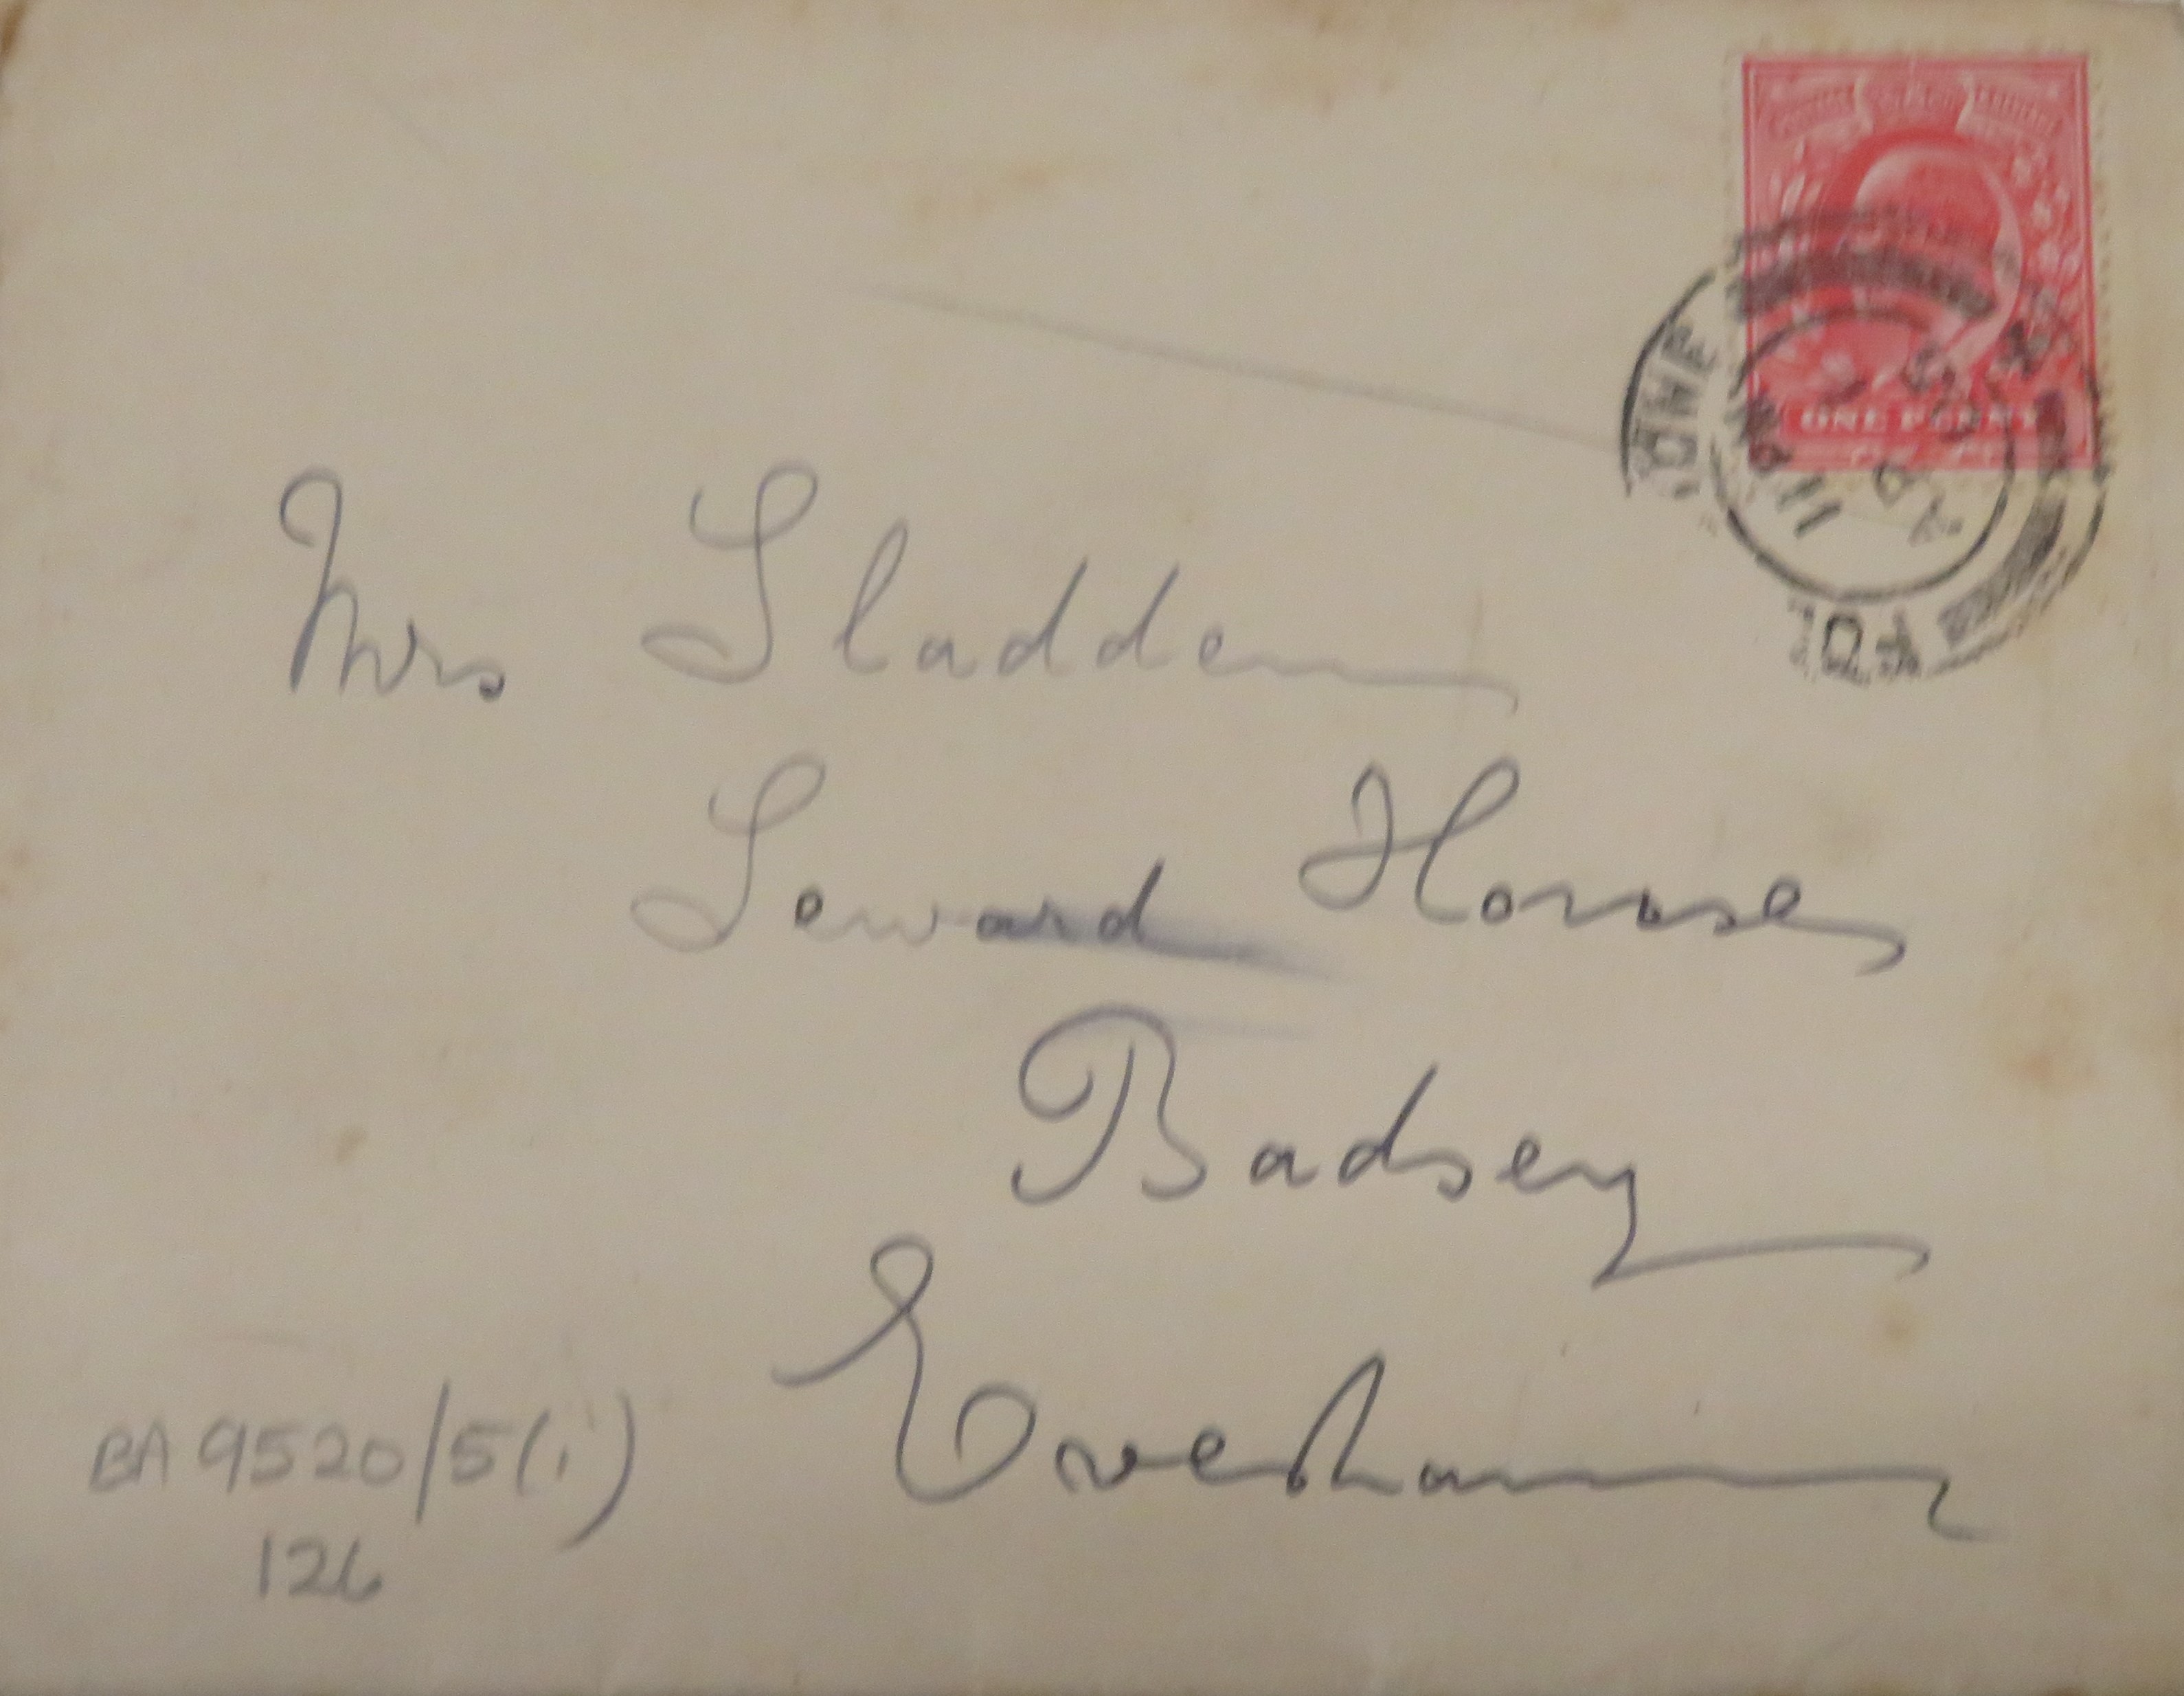 ONE PENNY
Mrs Sladden
Seward House
Badsey
Evesham
BA 9520/5(i)
126